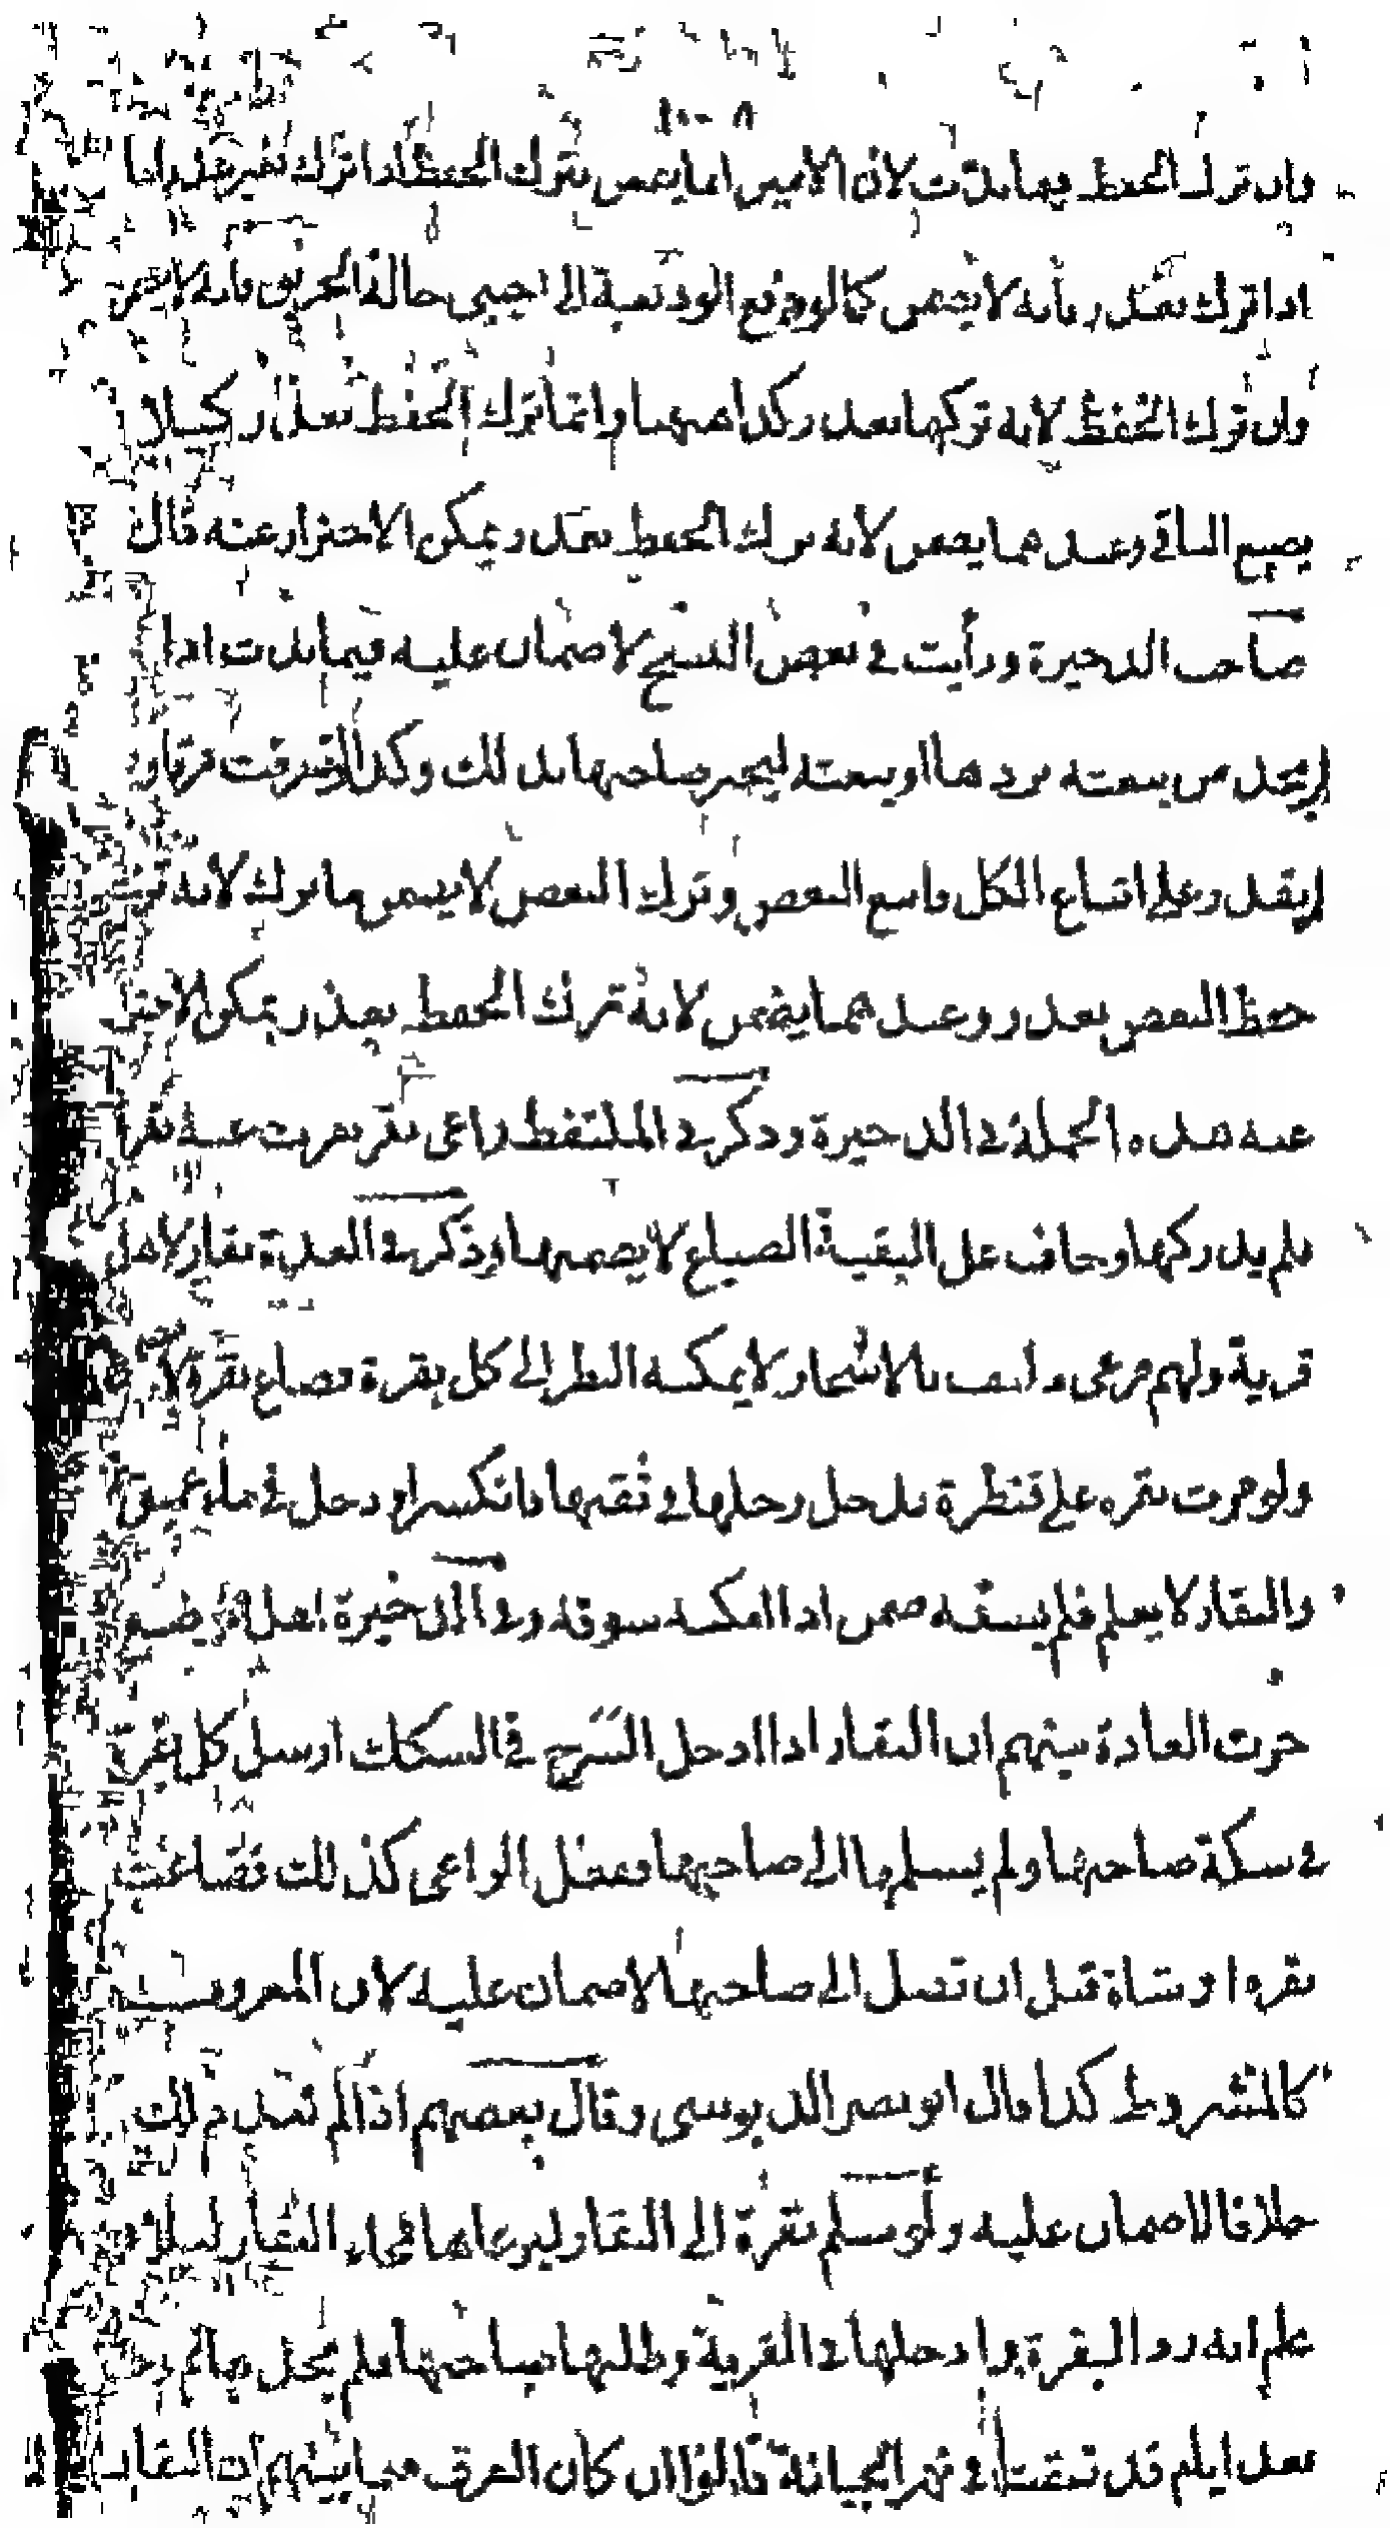 وان ترك الحفظ فيما ندت لان الامين انما يضمن بترك الحفظ اذا ترك بغير عذر واما
اذا ترك بعذر فانه لا يضمن كما لو دفع الوديعة الى اجنبي حالة الحريق فانه لا يضمن
وان ترك الحفظ لانه تركها بعذر وكذا ههنا وانما ترك الحفظ بعذر كيلا
يضيع الباقي وعندهما يضمن لانه ترك الحفظ بعذر ويمكن الاحتراز عنه قال
صاحب الذخيرة ورأيت في بعض النسخ لا ضمان عليه فيما ندت اذا
لم يجد من يبعثه بردها او يبعثه ليخبر صاحبها بذلك وكذا لو تفرقت فرقا ولم
لم يقدر على اتباع الكل فاتبع البعض وترك البعض لا يضمن ما ترك لانه ترك
حفظ البعض بعذر وعندهما يضمن لانه ترك الحفظ بعذر يمكن الاحتراز
عنه هذه الجملة في الذخيرة وذكر في الملتقط راعي بقر هربت عنه بقرة
فلم يدركها وخاف على البقية الضياع لا يضمنها وذكر في العدة بقار لاهل
قرية ولهم مرعى ملتف بالاشجار لا يمكنه النظر الى كل بقرة فضاع بقرة لا
ولو مرت بقرة على قنطرة فدخل رجلها في ثقبها فانكسر او دخل في ماء عميق
والبقار لا يعلم فلم يسقه ضمن اذا امكنه سوقه وفي الذخيرة اهل موضع
جرت العادة بينهم ان البقار اذا ادخل السرح في السكك ارسل كل بقرة
في سكة صاحبها ولم يسلمها الى صاحبها ففعل الراعي كذلك فضاعت
بقرة او شاة قبل ان تصل الى صاحبها لا ضمان عليه لان المعروف
كالمشروط كذا قال ابو نصر الدبوسي وقال بعضهم اذا لم يعد ذلك
خلافا لا ضمان عليه ولو سلم بقرة الى البقار ليرعاها فجاء البقار ليلا
علم انه رد البقرة وادخلها في القرية وطلبها صاحبها فلم يجدها ثم وجد
بعد ايام قد نفقت في نهر الجبانة قالوا ان كان العرف فيما بينهم ان البقار